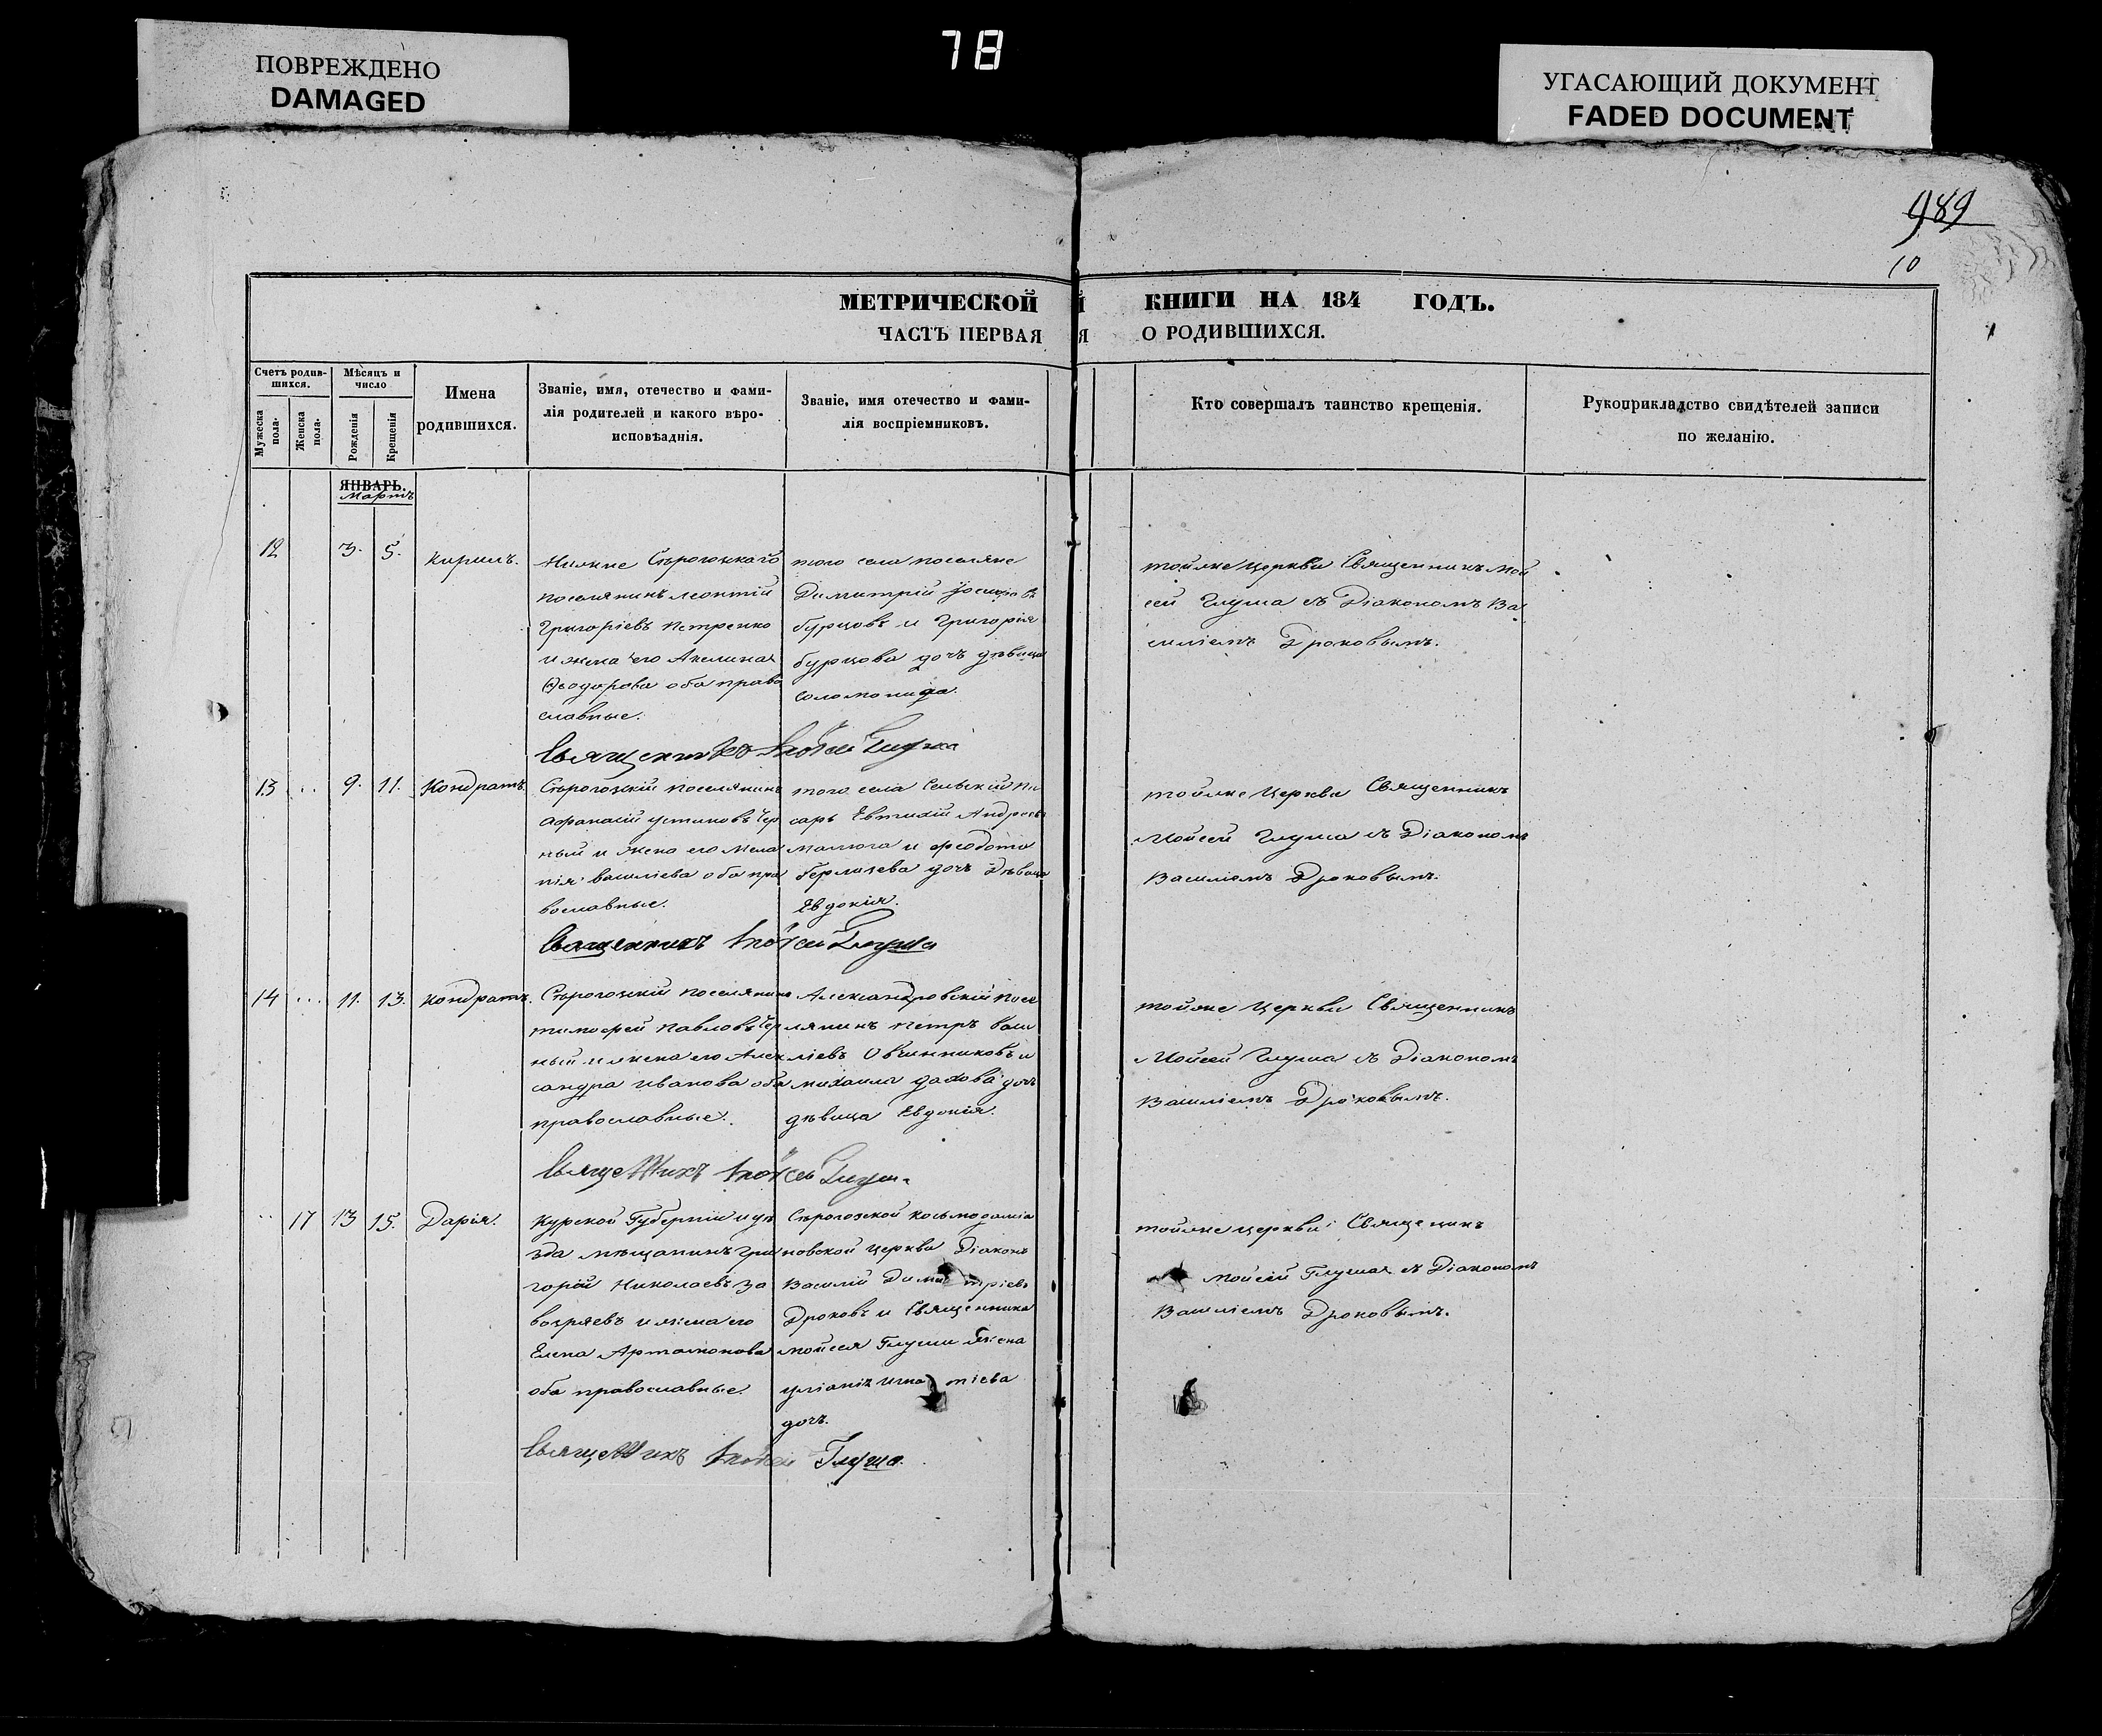 78
ПОВРЕЖДЕНО
DAMAGED
УГАСАЮЩИЙ ДОКУМЕНТ
FADED DOCUMENT
989
10
МЕТРИЧЕСКОЙ КНИГИ НА 184 ГОДЪ.
ЧАСТЬ ПЕРВАЯ О РОДИВШИХСЯ.
Счетъ родив-
шихся.
Мужеска
пола.
Женска
пола.
Мѣсяцъ и
число
Рожденія
Крещенія
Имена
родившихся.
Званіе, имя, отечество и фами-
лія родителей и какого вѣро-
исповѣаднія.
Званіе, имя отечество и фами-
лія воспріемниковъ.
Кто совершалъ таинство крещенія.
Рукоприкладство свидѣтелей записи
по желанію.
ЯНВАРЬ.
Мартъ
12 3. 5. Кирилъ.
Нижне Сѣрогозкаго
поселянинъ Леонтій
Григоріевъ Петренко
и жена его Акилина
Ѳеодорова оба право
славные.
того села поселяне
Димитрій
бурцовъ и Григорія
бурцова дочъ дѣвица
Соломонида.
тойже церкви Священникъ Мой
сей Глуша съ Діакономъ Ва
силіемъ Дроковымъ.
Священникъ Мойсей Глуша
13 .. 9. 11. Кондратъ.
Сѣрогозскій поселянинъ
Афанасій Устиновъ Чер
ный и жена его Мела
нія Василіева оба пра
вославные.
того села Сельскій пи
сарь Евтихій Андреевъ
Малюга и Феодота
дочъ Дѣвица
Евдокія.
тойже Церкви Священникъ
Мойсей Глуша съ Діакономъ
Василіемъ Дроковымъ.
Священникъ Мойсей Глуша
14 ... 11. 13. Кондратъ.
Сѣрогозскій поселянинъ
тимофей Павловъ Чер
ный и жена его Алек
сандра Иванова оба
православные.
Александровскій посе
лянинъ Петръ Васи
ліевъ Овчинниковъ и
Михаила дочъ
дѣвица Евдокія.
тойже Церкви Священникъ
Мойсей Глуша съ Діакономъ
Василіемъ Дроковымъ.
Священникъ Мойсей Глуша
.. 17 13 15. Дарія.
Курской Губерніи и уѣ
зда мѣщанинъ Гри
горій Николаевъ За
возряевъ и жена его
Елена Артамонова
оба православные.
Сѣрогозской косьмодаміа
новской церкви Діаконъ
Василій Димитріевъ
Дроковъ и Священника
Мойсея Глуши жена
уліанія Игнатіева
дочъ.
тойже церкви Священикъ
Мойсей Глуша съ Діакономъ
Василіемъ Дроковымъ.
Священникъ Мойсей Глуша.